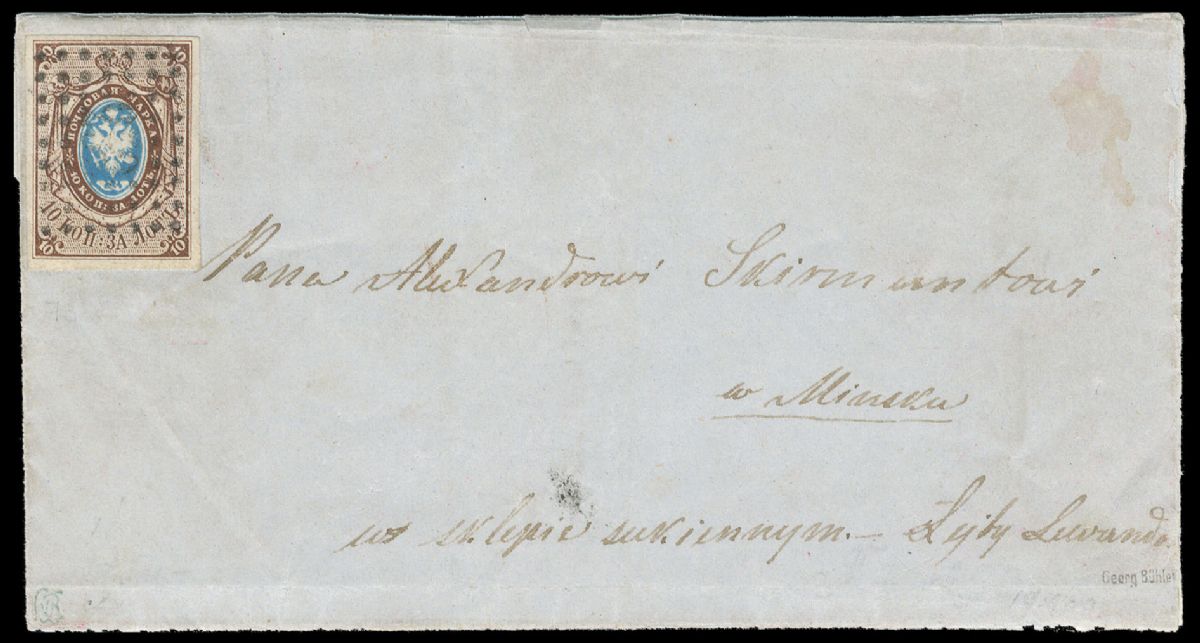 10 10
ПОЧТОВАЯ МАРКА
10 КОП: ЗА ЛОТЪ
10 КОП: ЗА ЛОТЪ
10 10
Pana Alexandrowi Skirmuntowi
w Mińsku
w sklepie sukiennym. — Zejty Lewando
Georg Bühler